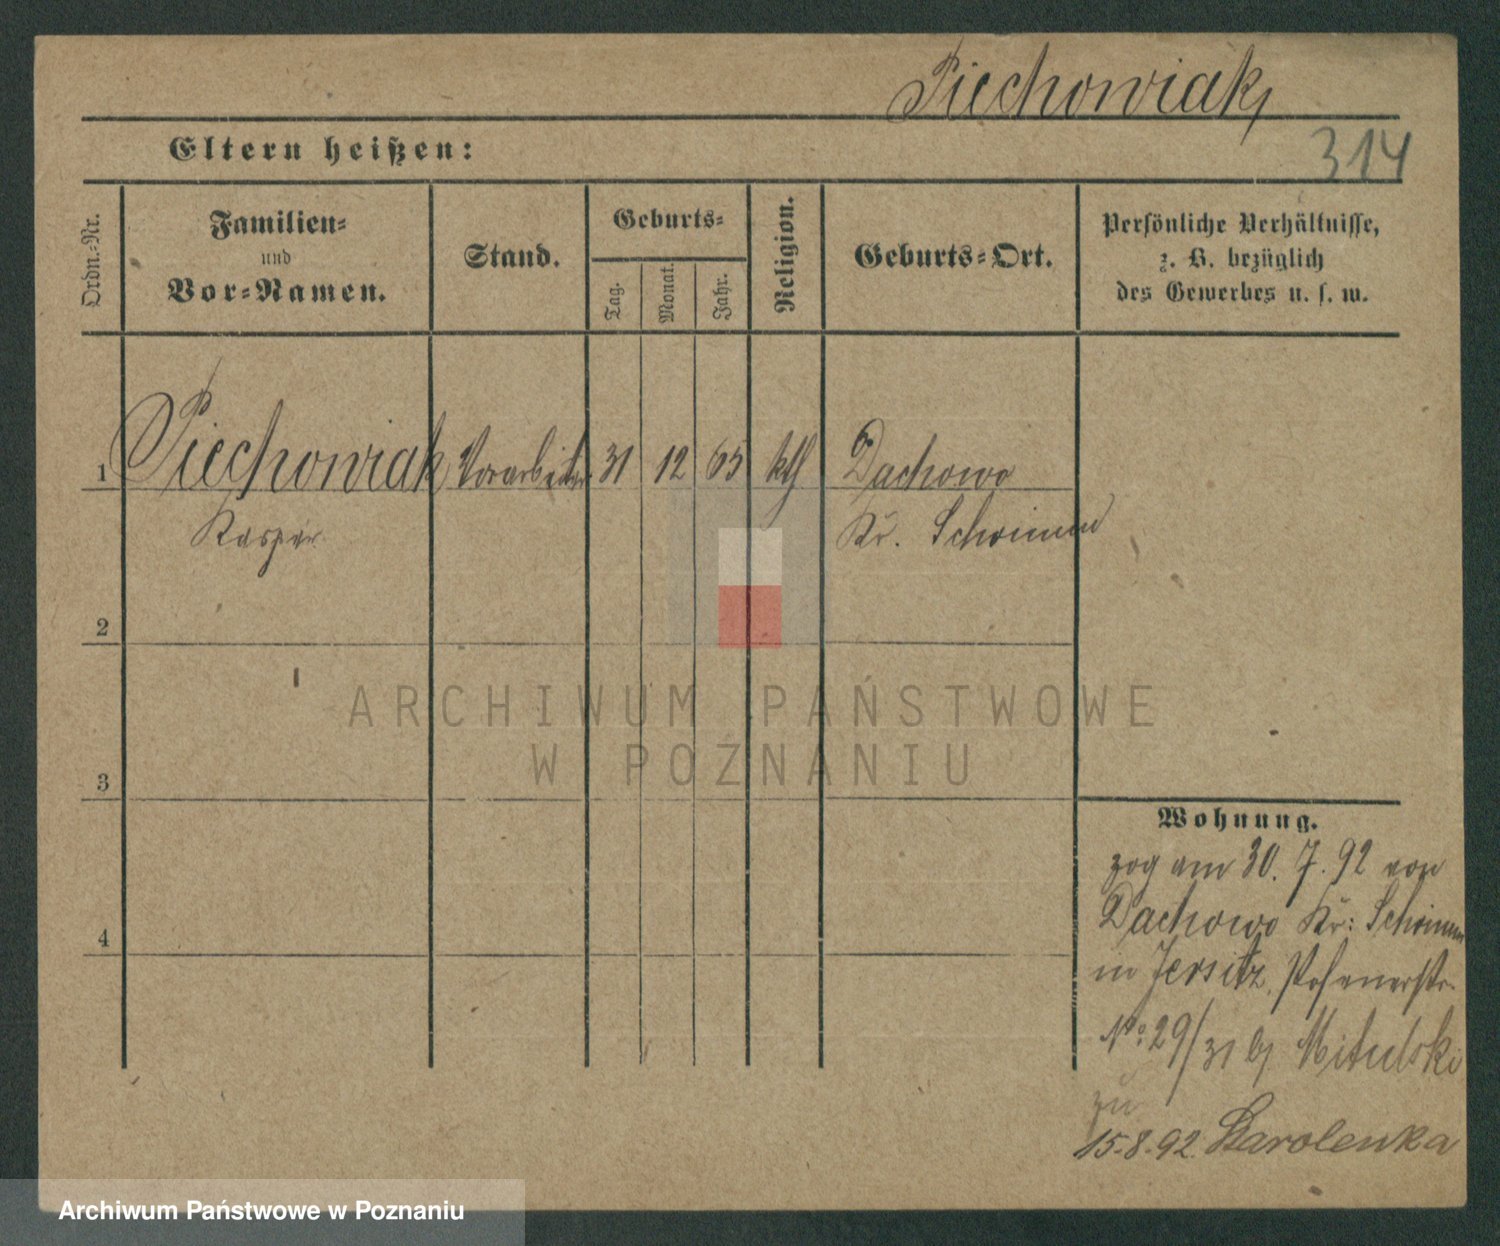 Piechowiak
Eltern heißen:
314
Ordn.-Nr.
Familien-
und
Vor-Namen.
Stand.
Geburts-
Tag.
Monat.
Jahr.
Religion.
Geburts-Ort.
Persönliche Verhältnisse,
z. B. bezüglich
des Gewerbes u. s. w.
1 Piechowiak Vorarbeiter 31 12 65 kth Dachowo
Kaspar Kr. Schrimm
2
3
4
ARCHIWUM PAŃSTWOWE
W POZNANIU
Wohnung.
zog am 30. 7. 92 von
Dachowo Kr: Schrimm
in Jersitz, Posenerstr.
No: 29/31 bj Mitulski
zu
15.8.92. Karolenka
Archiwum Państwowe w Poznaniu